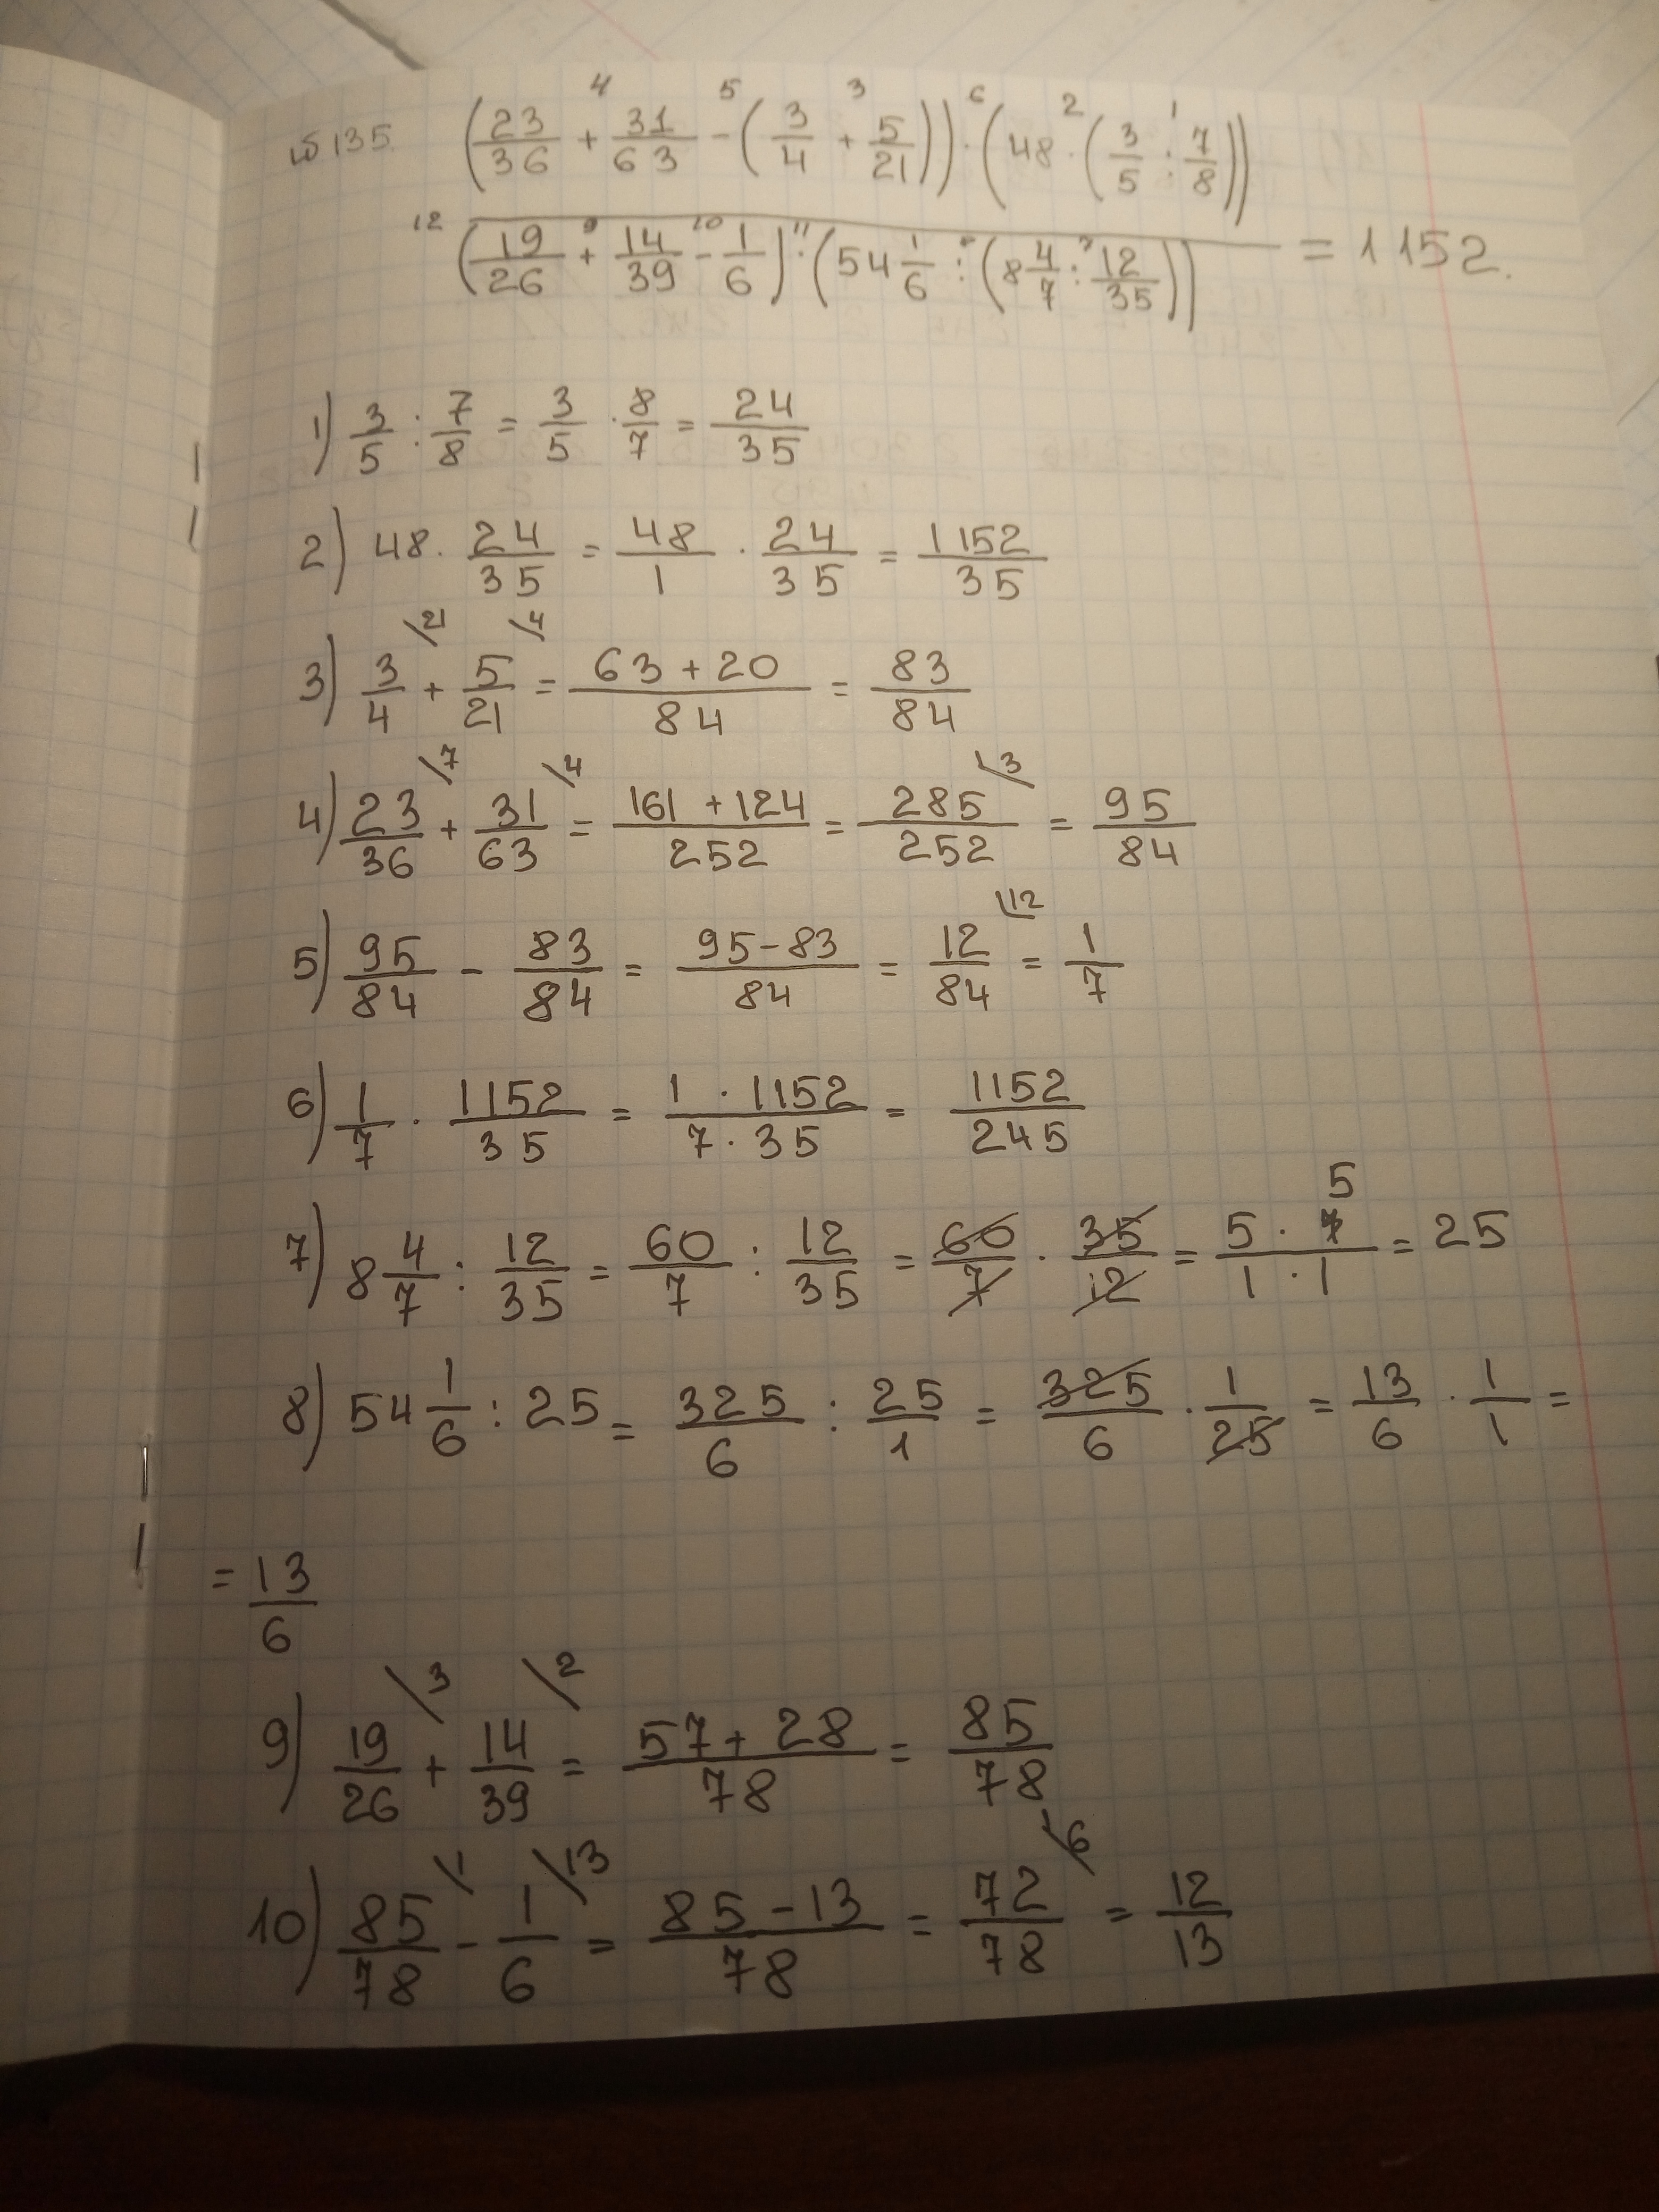 №135. (23/36 + 31/63 - (3/4 + 5/21)) · (48 · (3/5 : 7/8))
4 5 3 6 2 1
12 (19/26 + 14/39 - 1/6) · (54 1/6 : (8 4/7 : 12/35)) = 1152.
9 10 11 8 7
1) 3/5 : 7/8 = 3/5 · 8/7 = 24/35
2) 48 · 24/35 = 48/1 · 24/35 = 1152/35
3) 3/4 \21 + 5/21 \4 = 63+20/84 = 83/84
4) 23/36 \7 + 31/63 \4 = 161+124/252 = 285/252 \3 = 95/84
5) 95/84 - 83/84 = 95-83/84 = 12/84 \12 = 1/7
6) 1/7 · 1152/35 = 1 · 1152/7 · 35 = 1152/245
7) 8 4/7 : 12/35 = 60/7 : 12/35 = 60/7 · 35/12 = 5 · 5/1 · 1 = 25
8) 54 1/6 : 25 = 325/6 : 25/1 = 325/6 · 1/25 = 13/6 · 1/1 =
= 13/6
9) 19/26 \3 + 14/39 \2 = 57+28/78 = 85/78
10) 85/78 \1 - 1/6 \13 = 85-13/78 = 72/78 \6 = 12/13